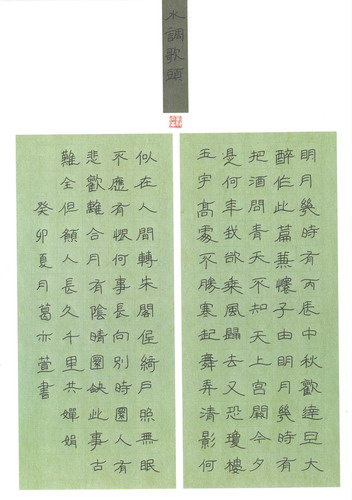 水調歌頭
明月幾時有丙辰中秋歡達旦大
醉作此篇兼懷子由明月幾時有
把酒問青天不知天上宮闕今夕
是何年我欲乘風歸去又恐瓊樓
玉宇高處不勝寒起舞弄清影何
似在人間轉朱閣低綺戶照無眠
不應有恨何事長向別時圓人有
悲歡離合月有陰晴圓缺此事古
難全但願人長久千里共嬋娟
癸卯夏月葛亦萱書